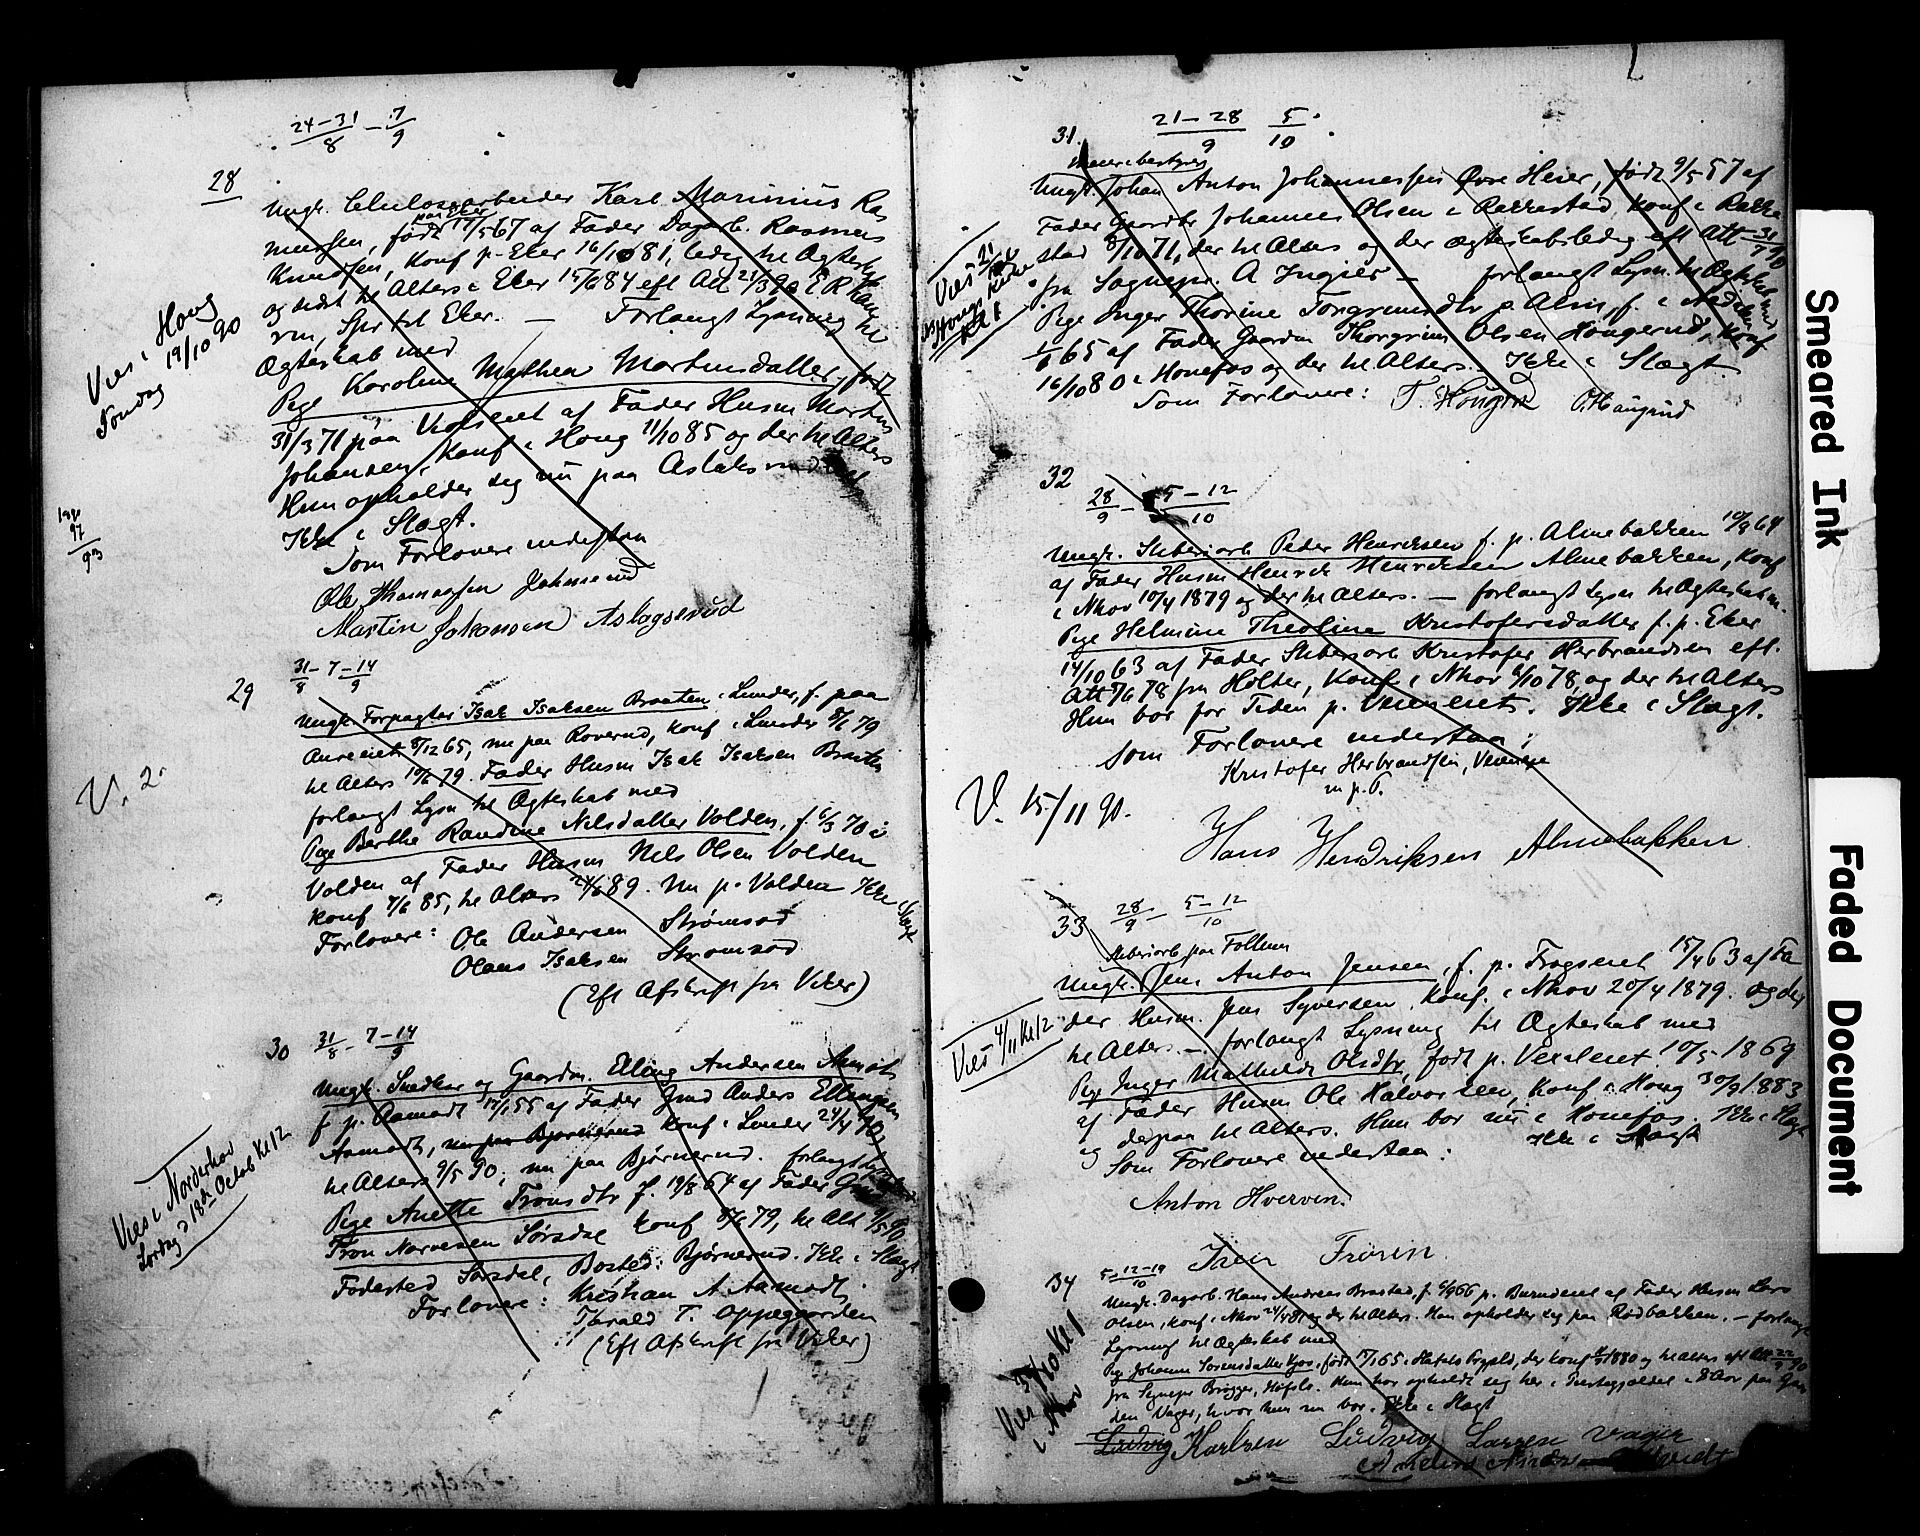 24-31/8 - 7/9
28
Ungk. Celulosearbeider Karl Marinius Ras
mussen, født paa Eker 17/5 67 af Fader Dagarb. Rasmus
Knudsen, Konf p. Eker 16/10 81, ledig til Ægtesk
og sidst til Alters i Eker 15/6 84 efl Att 21/3 90
Eker. — Forlangt Lysning til
Ægteskab med
Pige Karoline Mathea Martinsdatter, født
31/3 71 paa af Fader Husm Martin
Johansen, Konf i Houg 11/10 85 og der til Alters
Hun opholder sig nu paa Aslaksrud
Ikke i Slægt.
Som Forlovere undertaa
Ole Thomassen Johnsrud
Martin Johansen Aslagsrud
Vies i Houg
Søndag 19/10 90
97
93
29
31/8 - 7-14/9
Ungk. Forpagter Isak Isaksen Braaten i Lunder, f. paa
8/12 65, nu paa Roverud, konf i Lunder 8/6 79
til Alters 10/6 79. Fader Husm Isak Isaksen Braaten
forlangt Lysn til Ægteskab med
Pige Berthe Randine Nilsdatter Volden, f. 6/3 70 i
Volden af Fader Husm Nels Olsen Volden
konf 7/6 85, til Alters 24/6 89. Nu p. Volden Ikke i Slægt
Forlovere: Ole Andersen Strømsod
Olaus Isaksen Strømsod
(Eft Afskrift fra Viker)
V. 2
30
31/8 - 7-14/9
Ungk. Snedker og Gaardm. Elling Andersen Aamodt
f. p. Aamodt 17/1 55 af Fader Gmd Anders Ellingsen
Aamodt, nu paa Bjørnerud konf i Lunder 24/4 70,
til Alters 9/5 90; nu paa Bjørnerud. forlangt Lysn
Pige Anette Tronsdtr f. 19/8 64 af Fader Gmd
Tron Narvesen Sørsdal konf 8/6 79, til Alt 9/5 90
Fødested Sørsdal, Bosted: Bjørnerud. Ikke i Slægt
Forlovere: Kristian A Aamodt
Harald T. Oppegaarden
(Eft Afskrift fra Viker)
Vies i Norderhov
Lørdag d 18de Octob Kl 12
31.
21-28/9 5/10
Meieribestyrer
Ungk. Johan Anton Johannessen Øvre Heier, født 9/5 57 af
Fader Gaardbr Johannes Olsen i Rakkestad, Konf i Rakke
stad 8/10 71, der til Alters og der ægteskabsledig eft Att 31/7 90
fra Sognepr. A Ingier — forlangt Lysn. til Ægtskab med
Pige Inger Thorine Torgrimsdtr p. Alm, f. i Naderhov
1/6 65 af Fader Gaardm Thorgrim Olsen Hougerud, Konf
16/10 80 i Hønefos og der til Alters. Ikke i Slægt.
Som Forlovere: T. Hougrud O. Haugrud
32
28/9 - 5-12/10
Ungk. Sliberiarb Peder Henriksen f. p. Almebakken 10/9 64
af Fader Husm Henrik Henriksen Almebakken, Konf
i Nhov 10/4 1879 og der til Alters. — forlangt Lysn til Ægteskab m.
Pige Helmine Theoline Kristofersdatter f. p. Eker
14/10 63 af Fader Sliberiarb Kristofer Herbrandsen eft.
Att 8/6 78 fra Holter, Konf i Nhov 6/10 78, og der til Alters
Hun bor for Tiden p. Veieneiet. Ikke i Slægt.
Som Forlovere undertaa:
Kristofer Herbrandsen, Veieneie
m. p. P.
V. 15/11 90.
Hans Hendriksen Almebakken
33
28/9 - 5-12/10
Sliberiarb. paa Follum
Ungk. Jens Anton Jensen, f. p. Fragseiet 15/4 63 af Fa
der Husm. Jens Syversen, Konf. i Nhov 20/4 1879. og der
til Alters. — forlangt Lysning til Ægteskab med
Pige Inger Mathilde Olsdtr, født p. 10/5 1869
af Fader Husm Ole Halvorsen, Konf i Houg 30/9 1883
og derpaa til Alters. Hun bor nu i Hønefos. Ikke i Slægt
Ikke i Slægt
Som Forlovere undertaa:
Anton Hverven.
Vies 4/11 Kl 12
34
5-12-19/10
Ungk. Dagarb. Hans Andreas Braastad, f. 6/9 66 p. af Fader Husm Lars
Olsen, konf. i Nhov 24/4 81 og der til Alters. Han opholder sig paa Rødbakken. — forlangt
Lysning til Ægteskab med
Pige Johanne Sorensdatter Kjos, født 17/1 65 i Prgjld, der konf 1880 og til Alters eft Att 22/9 90
fra Sognepr Brøgger, Høfsls. Hun har opholdt sig her i Præstegjældet i 8 Aar paa Gaar
den Vager, hvor hun nu bor. Ikke i Slægt
Ludvig Karlsen Ludvig Larsen Vager
Vies
i Nhov
Smeared Ink
Faded Document